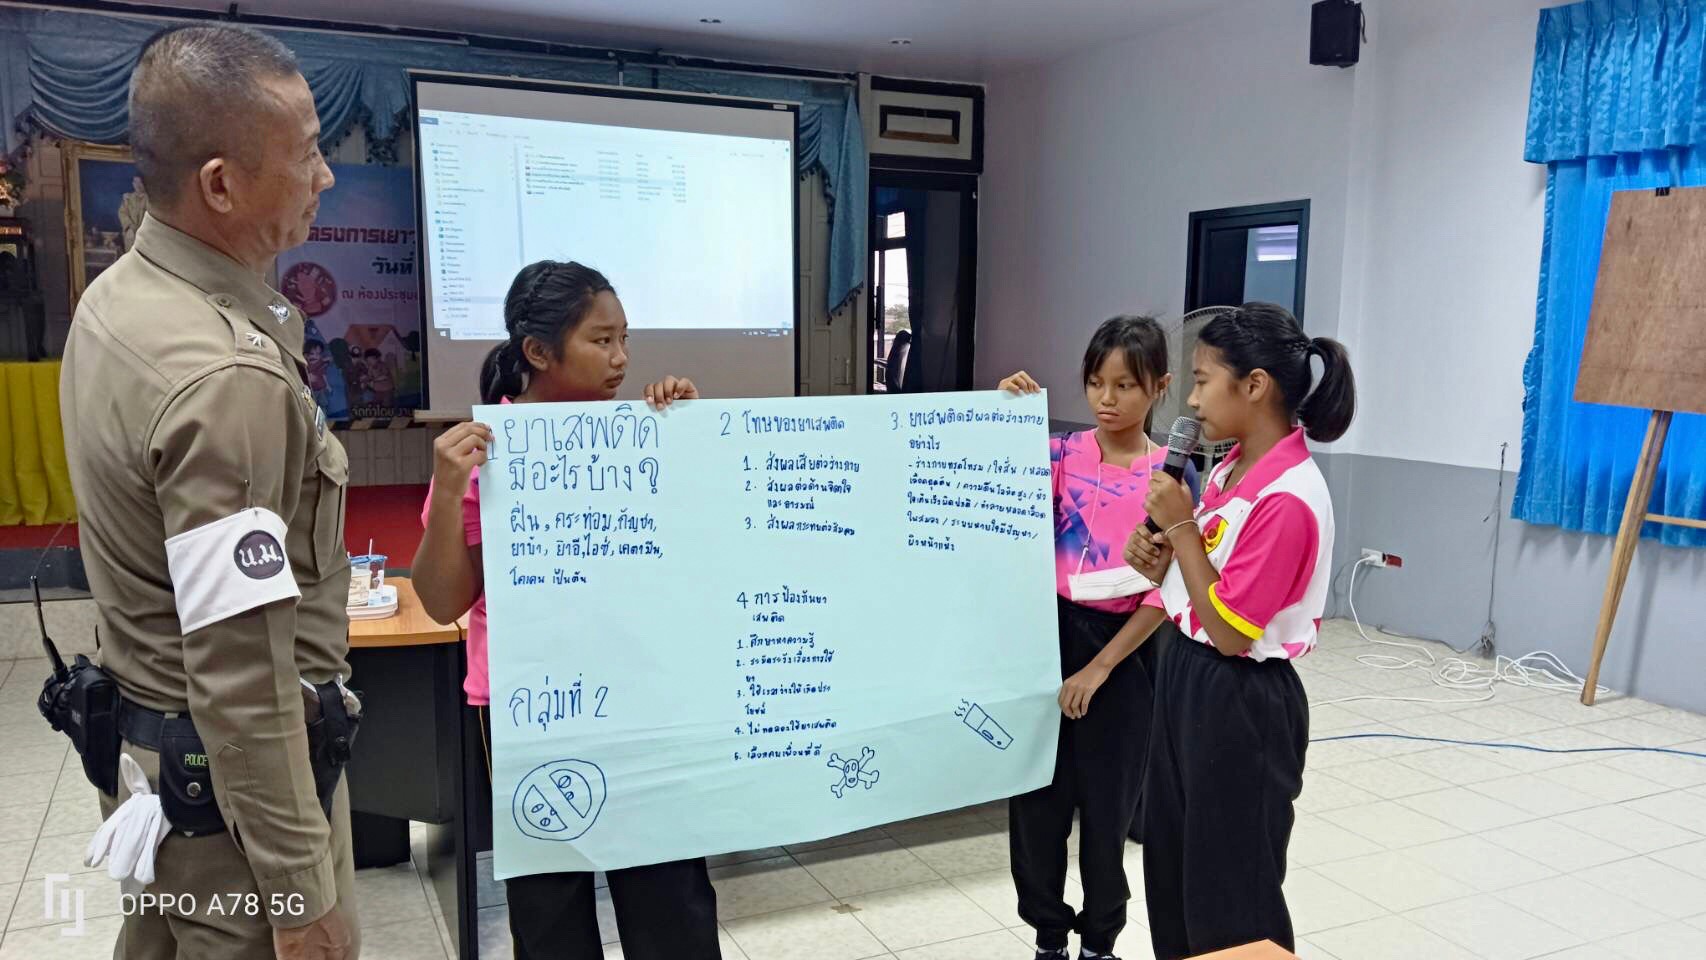 โครงการเยาว
วันที่
ณ ห้องประชุม
จัดทำโดย งาน
ยาเสพติด
มีอะไรบ้าง?
ฝิ่น, กระท่อม, กัญชา,
ยาบ้า, ยาอี, ไอซ์, เคตามีน,
โคเคน เป็นต้น
กลุ่มที่ 2
2 โทษของยาเสพติด
1. ส่งผลเสียต่อร่างกาย
2. ส่งผลต่อด้านจิตใจ
และอารมณ์
3. ส่งผลกระทบต่อสังคม
4 การป้องกันยา
เสพติด
1. ศึกษาหาความรู้
2. ระมัดระวังเรื่องการใช้
ยา
3. ใช้เวลาว่างให้เกิดประ
โยชน์
4. ไม่ทดลองใช้ยาเสพติด
5. เลือกคบเพื่อนที่ดี
3. ยาเสพติดมีผลต่อร่างกาย
อย่างไร
- ร่างกายทรุดโทรม / ใจสั่น / หลอด
เลือดอุดตัน / ความดันโลหิตสูง / หัว
ใจเต้นเร็วผิดปกติ / ทำลายหลอดเลือด
ในสมอง / ระบบหายใจมีปัญหา /
ผิวหน้าแห้ง
น.ม.
POLICE
OPPO A78 5G